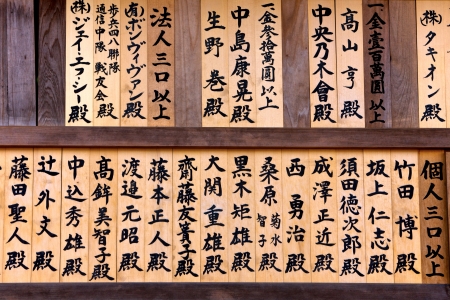 ㈱タキオン殿
一金壹百萬圓以上
高山亨殿
中央乃木會殿
一金参拾萬圓以上
中島康晃殿
生野巻殿
法人三口以上
㈲ボンヴィヴァン殿
歩兵四八聯隊通信中隊戦友会殿
㈱ジェイ・エフ・シー殿
個人三口以上
竹田博殿
坂上仁志殿
須田徳次郎殿
成澤正近殿
西勇治殿
桑原菊水智子殿
黒木矩雄殿
大関重雄殿
齋藤友美子殿
藤本正人殿
渡邉元昭殿
高鉾美智子殿
中込秀雄殿
辻外文殿
藤田聖人殿